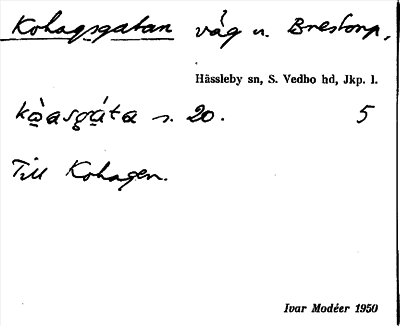 Kohagsgatan väg n. Brestorp,
Hässleby sn, S. Vedbo hd, Jkp. l.
kòasgáta s. 20. 5
Till Kohagen.
Ivar Modéer 1950